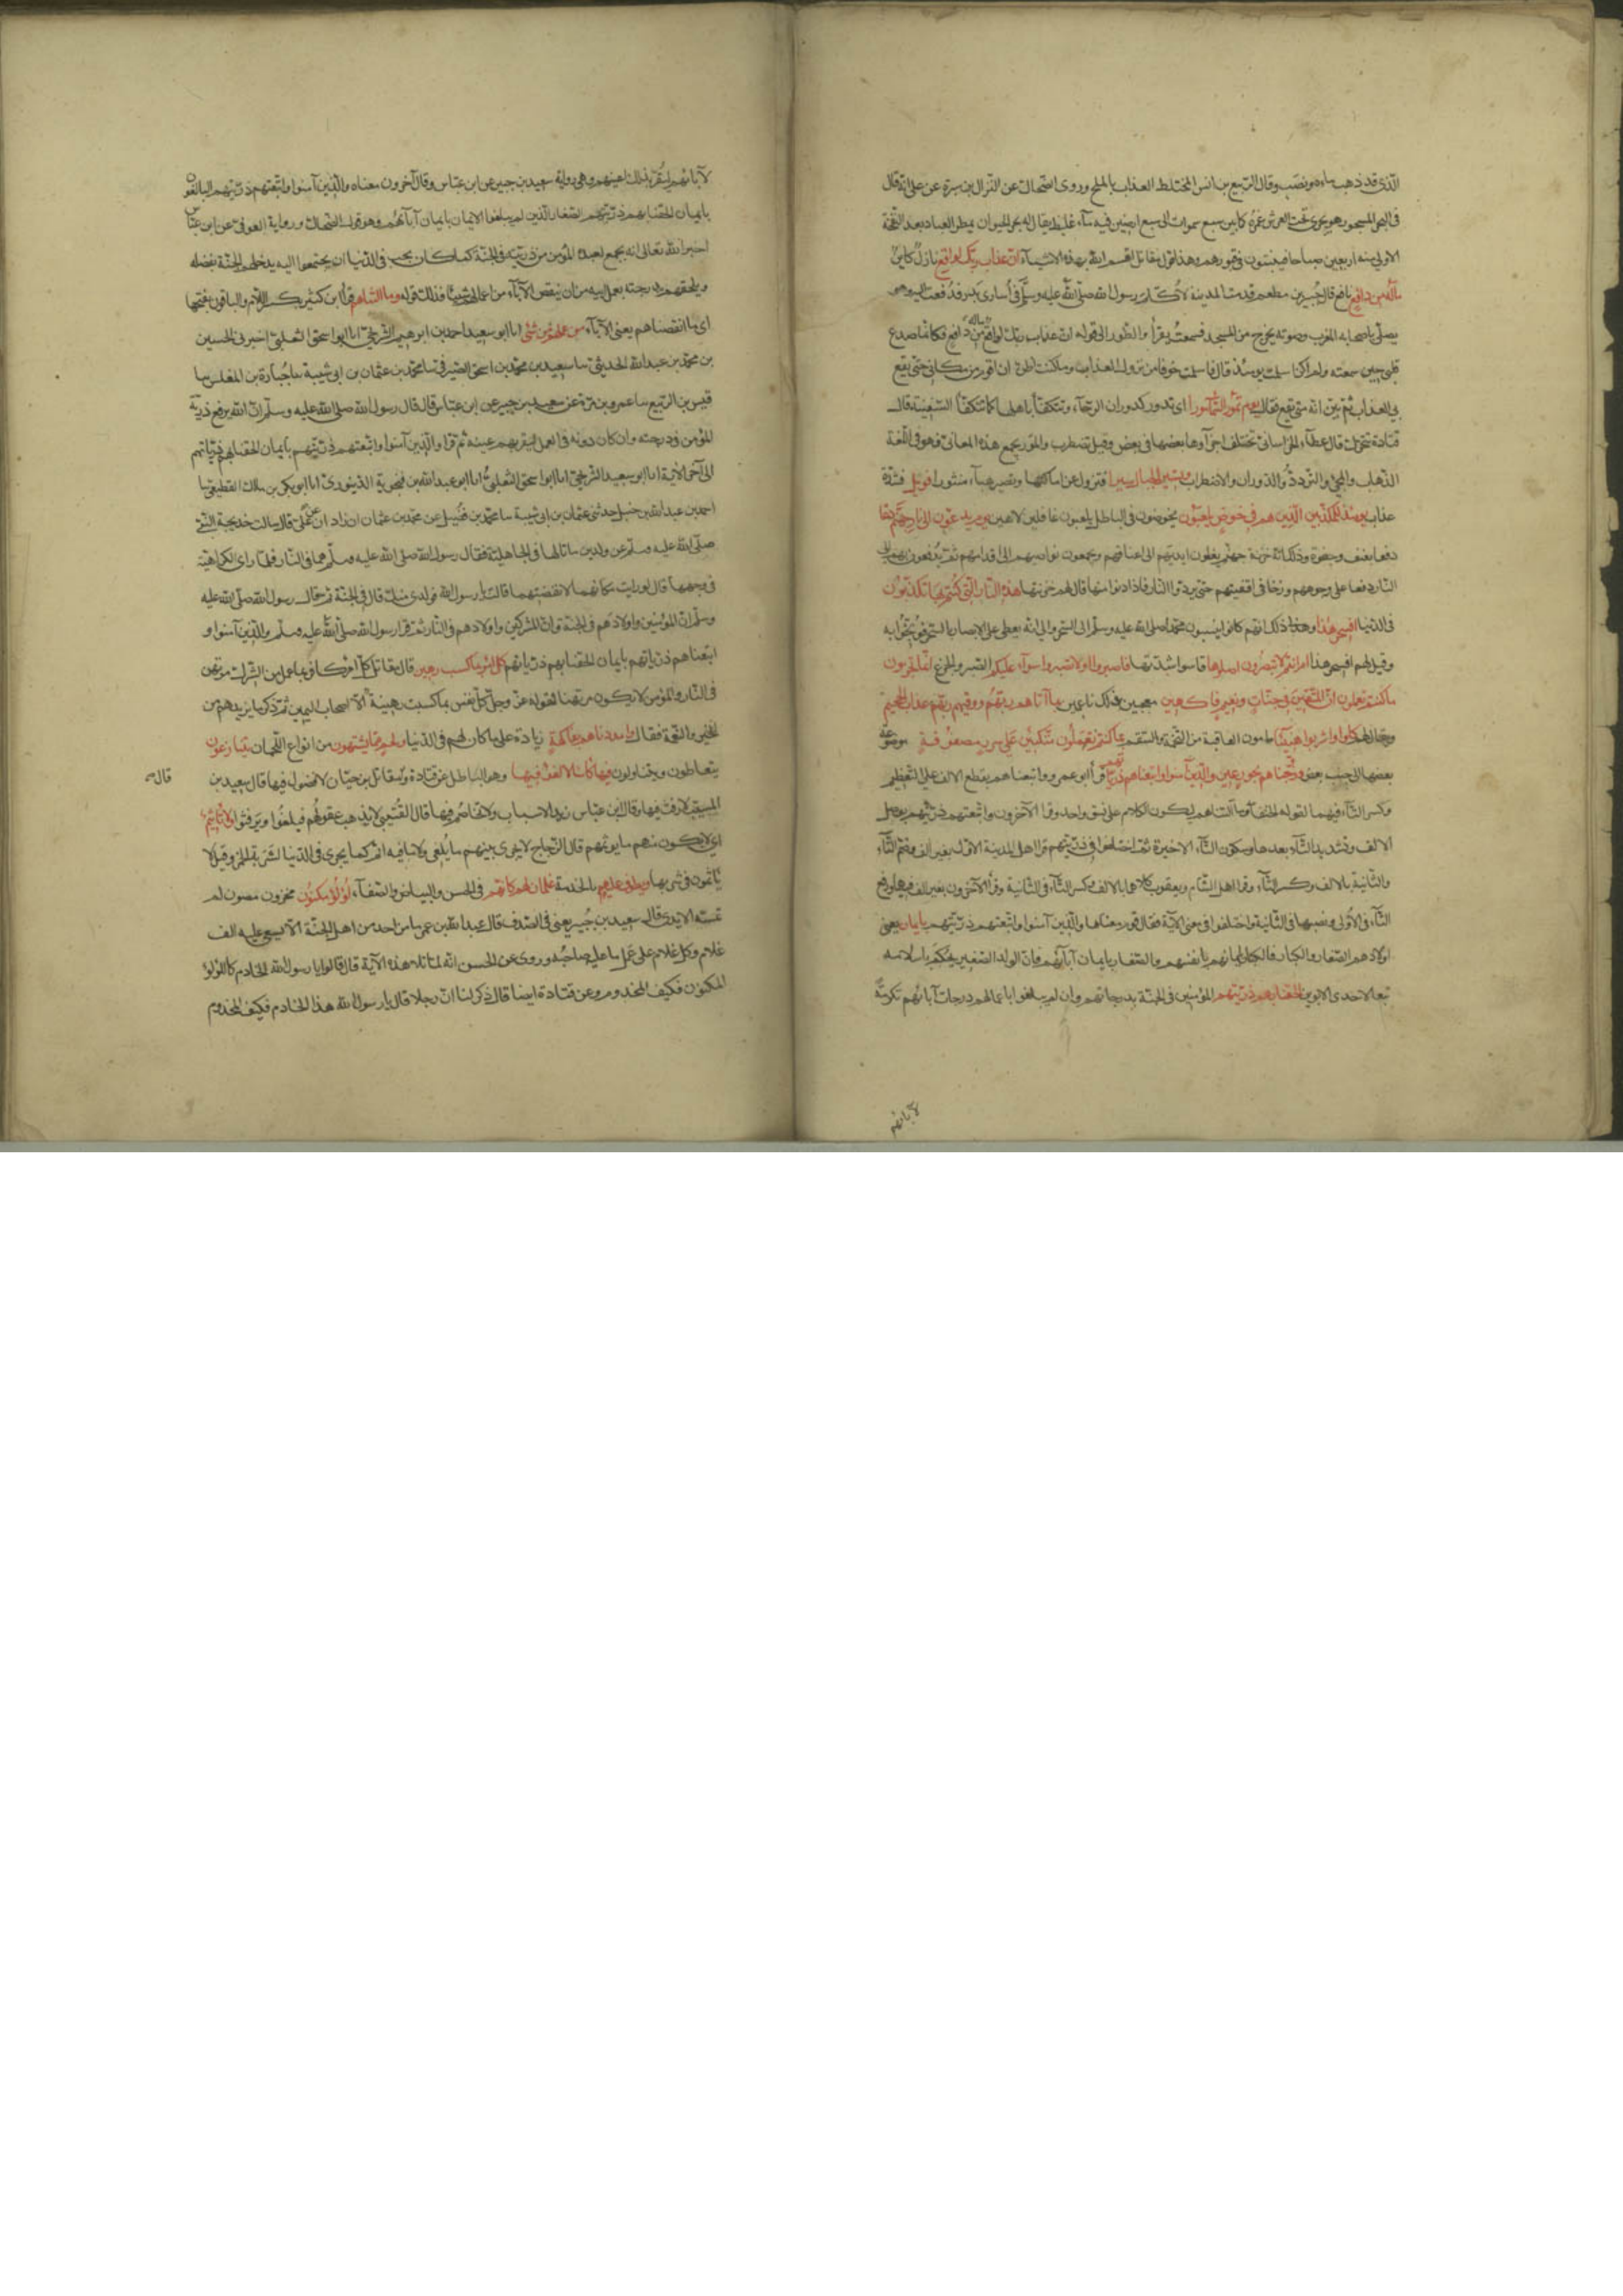 الذى قد ذهب ماءه ونضب وقال الربيع بن انس المختلط العذاب بالملح وروى الضحاك عن النزال بن سبرة عن على انه قال
فى البحر المسجور هو بحر تحت العرش غمره كما بين سبع سموات الى سبع ارضين فيه ماء غليظ يقال له بحر الحيوان يمطر العباد بعد النفخة
الاولى منه اربعين صباحا فينبتون فى قبورهم وهذا قول مقاتل اقسم الله بهذه الاشياء ان عذاب ربك لواقع نازل كاين
ماله من دافع مانع قال جبير بن مطعم قدمت المدينة لاكلم رسول الله صلى الله عليه وسلم فى أسارى بدر فدفعت اليه وهو
يصلى باصحابه المغرب وصوته يخرج من المسجد فسمعته يقرأ والطور الى قوله ان عذاب ربك لواقع ماله من دافع فكانما صدع
قلبى حين سمعته ولم اكن اسلمت يومئذ قال فاسلمت خوفا من نزول العذاب وما كنت اظن ان اقوم من مكانى حتى يقع
بى العذاب ثم بين انه متى يقع فقال يوم تمور السماء مورا اى تدور كدوران الرحاء وتتكفأ باهلها كما تتكفأ السفينة قال
قتادة تتحرك قال عطاء الخراسانى تختلف اجزاوها بعضها فى بعض وقيل تضطرب والمور يجمع هذه المعانى فهو فى اللغة
الذهاب والمجئ والتردد والدوران والاضطراب وتسير الجبال سيرا فتزول عن اماكنها وتصير هباء منثورا فويل فشدة
عذاب يومئذ للمكذبين الذين هم فى خوض يلعبون يخوضون فى الباطل يلعبون غافلين لاهين يوم يدعون الى نار جهنم دعا
دفعا بعنف وجفوة وذلك ان خزنة جهنم يغلون ايديهم الى اعناقهم ويجمعون نواصيهم الى اقدامهم ثم يدفعون بهم الى
النار دفعا على وجوههم وزخا فى اقفيتهم حتى يردوا النار فاذا دنوا منها قال لهم خزنتها هذه النار التى كنتم بها تكذبون
فى الدنيا افسحر هذا وذلك انهم كانوا ينسبون محمدا صلى الله عليه وسلم الى السحر والى انه يغطى على الابصار بالسحر فوبخوا به
وقيل لهم افسحر هذا ام انتم لا تبصرون اصلوها قاسوا شدتها فاصبروا او لا تصبروا سواء عليكم الصبر والجزع انما تجزون
ما كنتم تعملون ان المتقين فى جنات ونعيم فاكهين معجبين بذلك ناعمين بما آتاهم ربهم ووقيهم ربهم عذاب الجحيم
ويقال لهم كلوا واشربوا هنيئا مامون العاقبة من التخمة والسقم بما كنتم تعملون متكئين على سرر مصفوفة موضوعة
بعضها الى جنب بعض وزوجناهم بحور عين والذين آمنوا واتبعناهم ذرياتهم قرأ ابو عمرو واتبعناهم بقطع الالف على التعظيم
وكسر التاء فيهما لقوله الحقنا وما ألتناهم ليكون الكلام على نسق واحد وقرا الآخرون واتبعتهم ذريتهم بوصل
الالف وتشديد التاء بعدها وسكون التاء الاخيرة ثم اختلفوا فى ذريتهم قرا اهل المدينة الاول بغير الف وضم التاء
والثانية بالالف وكسر التاء وقرا اهل الشام ويعقوب كلاهما بالالف وكسر التاء فى الثانية وقرأ الآخرون بغير الف فيهما ورفع
التاء فى الاولى ونصبها فى الثانية واختلفوا فى معنى الآية فقال قوم معناها والذين آمنوا واتبعتهم ذريتهم بايمان يعنى
اولادهم الصغار والكبار فالكبار بايمانهم بانفسهم والصغار بايمان آبائهم فان الولد الصغير يحكم باسلامه
تبعا لاحد الابوين الحقنا بهم ذريتهم المؤمنين فى الجنة بدرجاتهم وان لم يبلغوا باعمالهم درجات آبائهم تكرمة
لآبائهم
لآبائهم لتقر بذلك اعينهم وهى رواية سعيد بن جبير عن ابن عباس وقال آخرون معناه والذين آمنوا واتبعتهم ذريتهم البالغون
بايمان الحقنا بهم ذريتهم الصغار الذين لم يبلغوا الايمان بايمان آبائهم وهو قول الضحاك ورواية العوفى عن ابن عباس
اخبر الله تعالى انه يجمع لعبده المؤمن من ذريته فى الجنة كما كان يحب فى الدنيا ان يجتمعوا اليه يدخلهم الجنة بفضله
ويلحقهم بدرجته بعمل ابيه من ان ينقص الآباء من اعمالهم شيئا فذلك قوله وما ألتناهم قرأ ابن كثير بكسر اللام والباقون بفتحها
اى ما انقصناهم يعنى الآباء من عملهم من شئ انا ابو سعيد احمد بن ابرهيم الشريحى انا ابو اسحق الثعلبى اخبرنى الحسين
بن محمد بن عبد الله الحديثى سا سعيد بن محمد بن اسحق الصيرفى سا محمد بن عثمان بن ابى شيبة سا جبارة بن المغلس سا
قيس بن الربيع سا عمرو بن مرة عن سعيد بن جبير عن ابن عباس قال قال رسول الله صلى الله عليه وسلم ان الله يرفع ذرية
المؤمن فى درجته وان كان دونه فى العمل ليقر بهم عينه ثم قرا والذين آمنوا واتبعتهم ذريتهم بايمان الحقنا بهم ذرياتهم
الى آخر الآية انا ابو سعيد الشريحى انا ابو اسحق الثعلبى انا ابو عبد الله بن فنجوية الدينورى انا ابو بكر بن مالك القطيعى سا
احمد بن عبد الله بن حنبل حدثنى عثمان بن ابى شيبة سا محمد بن فضيل عن محمد بن عثمان عن زاذان عن على قال سالت خديجة النبى
صلى الله عليه وسلم عن ولدين ماتا لها فى الجاهلية فقال رسول الله صلى الله عليه وسلم هما فى النار فلما راى الكراهية
فى وجهها قال لو رايت مكانهما لابغضتهما قالت يا رسول الله فولدى منك قال فى الجنة ثم قال رسول الله صلى الله عليه
وسلم ان المؤمنين واولادهم فى الجنة وان المشركين واولادهم فى النار ثم قرا رسول الله صلى الله عليه وسلم والذين آمنوا و
اتبعناهم ذرياتهم بايمان الحقنا بهم ذرياتهم كل امرئ بما كسب رهين قال مقاتل كل امرئ كافر بما عمل من الشرك مرتهن
فى النار والمؤمن لا يكون مرتهنا لقوله عز وجل كل نفس بما كسبت رهينة الا اصحاب اليمين ثم ذكر ما يزيدهم من
الخير والنعمة فقال وامددناهم بفاكهة زيادة على ما كان لهم فى الدنيا ولحم مما يشتهون من انواع اللحمان يتنازعون
يتعاطون ويتناولون فيها كأسا لا لغو فيها وهو الباطل عن قتادة وقال مقاتل بن حيان لا فضول فيها قال سعيد بن
المسيب لا رفث فيها وقال ابن عباس زيد لا سباب ولا تخاصم فيها قال القتيبى لا يذهب عقولهم فيلغوا ويرفثوا ولا تأثيم
قال
اى لا يكون منهم ما يؤثمهم قال الزجاج لا يجرى بينهم ما يلغى ولا ما فيه اثم كما يجرى فى الدنيا لشربة الخمر وقيل لا
يأثمون فى شربها ويطوف عليهم بالخدمة غلمان لهم كانهم فى الحسن والبياض والصفاء لؤلؤ مكنون مخزون مصون لم
تمسه الايدى قال سعيد بن جبير يعنى فى الصدف قال عبد الله بن عمر ما من احد من اهل الجنة الا يسعى عليه الف
غلام وكل غلام على عمل ما عليه صاحبه وروى عن الحسن انه لما تلا هذه الآية قال قالوا يا رسول الله الخادم كاللؤلؤ
المكنون فكيف المخدوم وعن قتادة ايضا قال ذكر لنا ان رجلا قال يا رسول الله هذا الخادم فكيف المخدوم